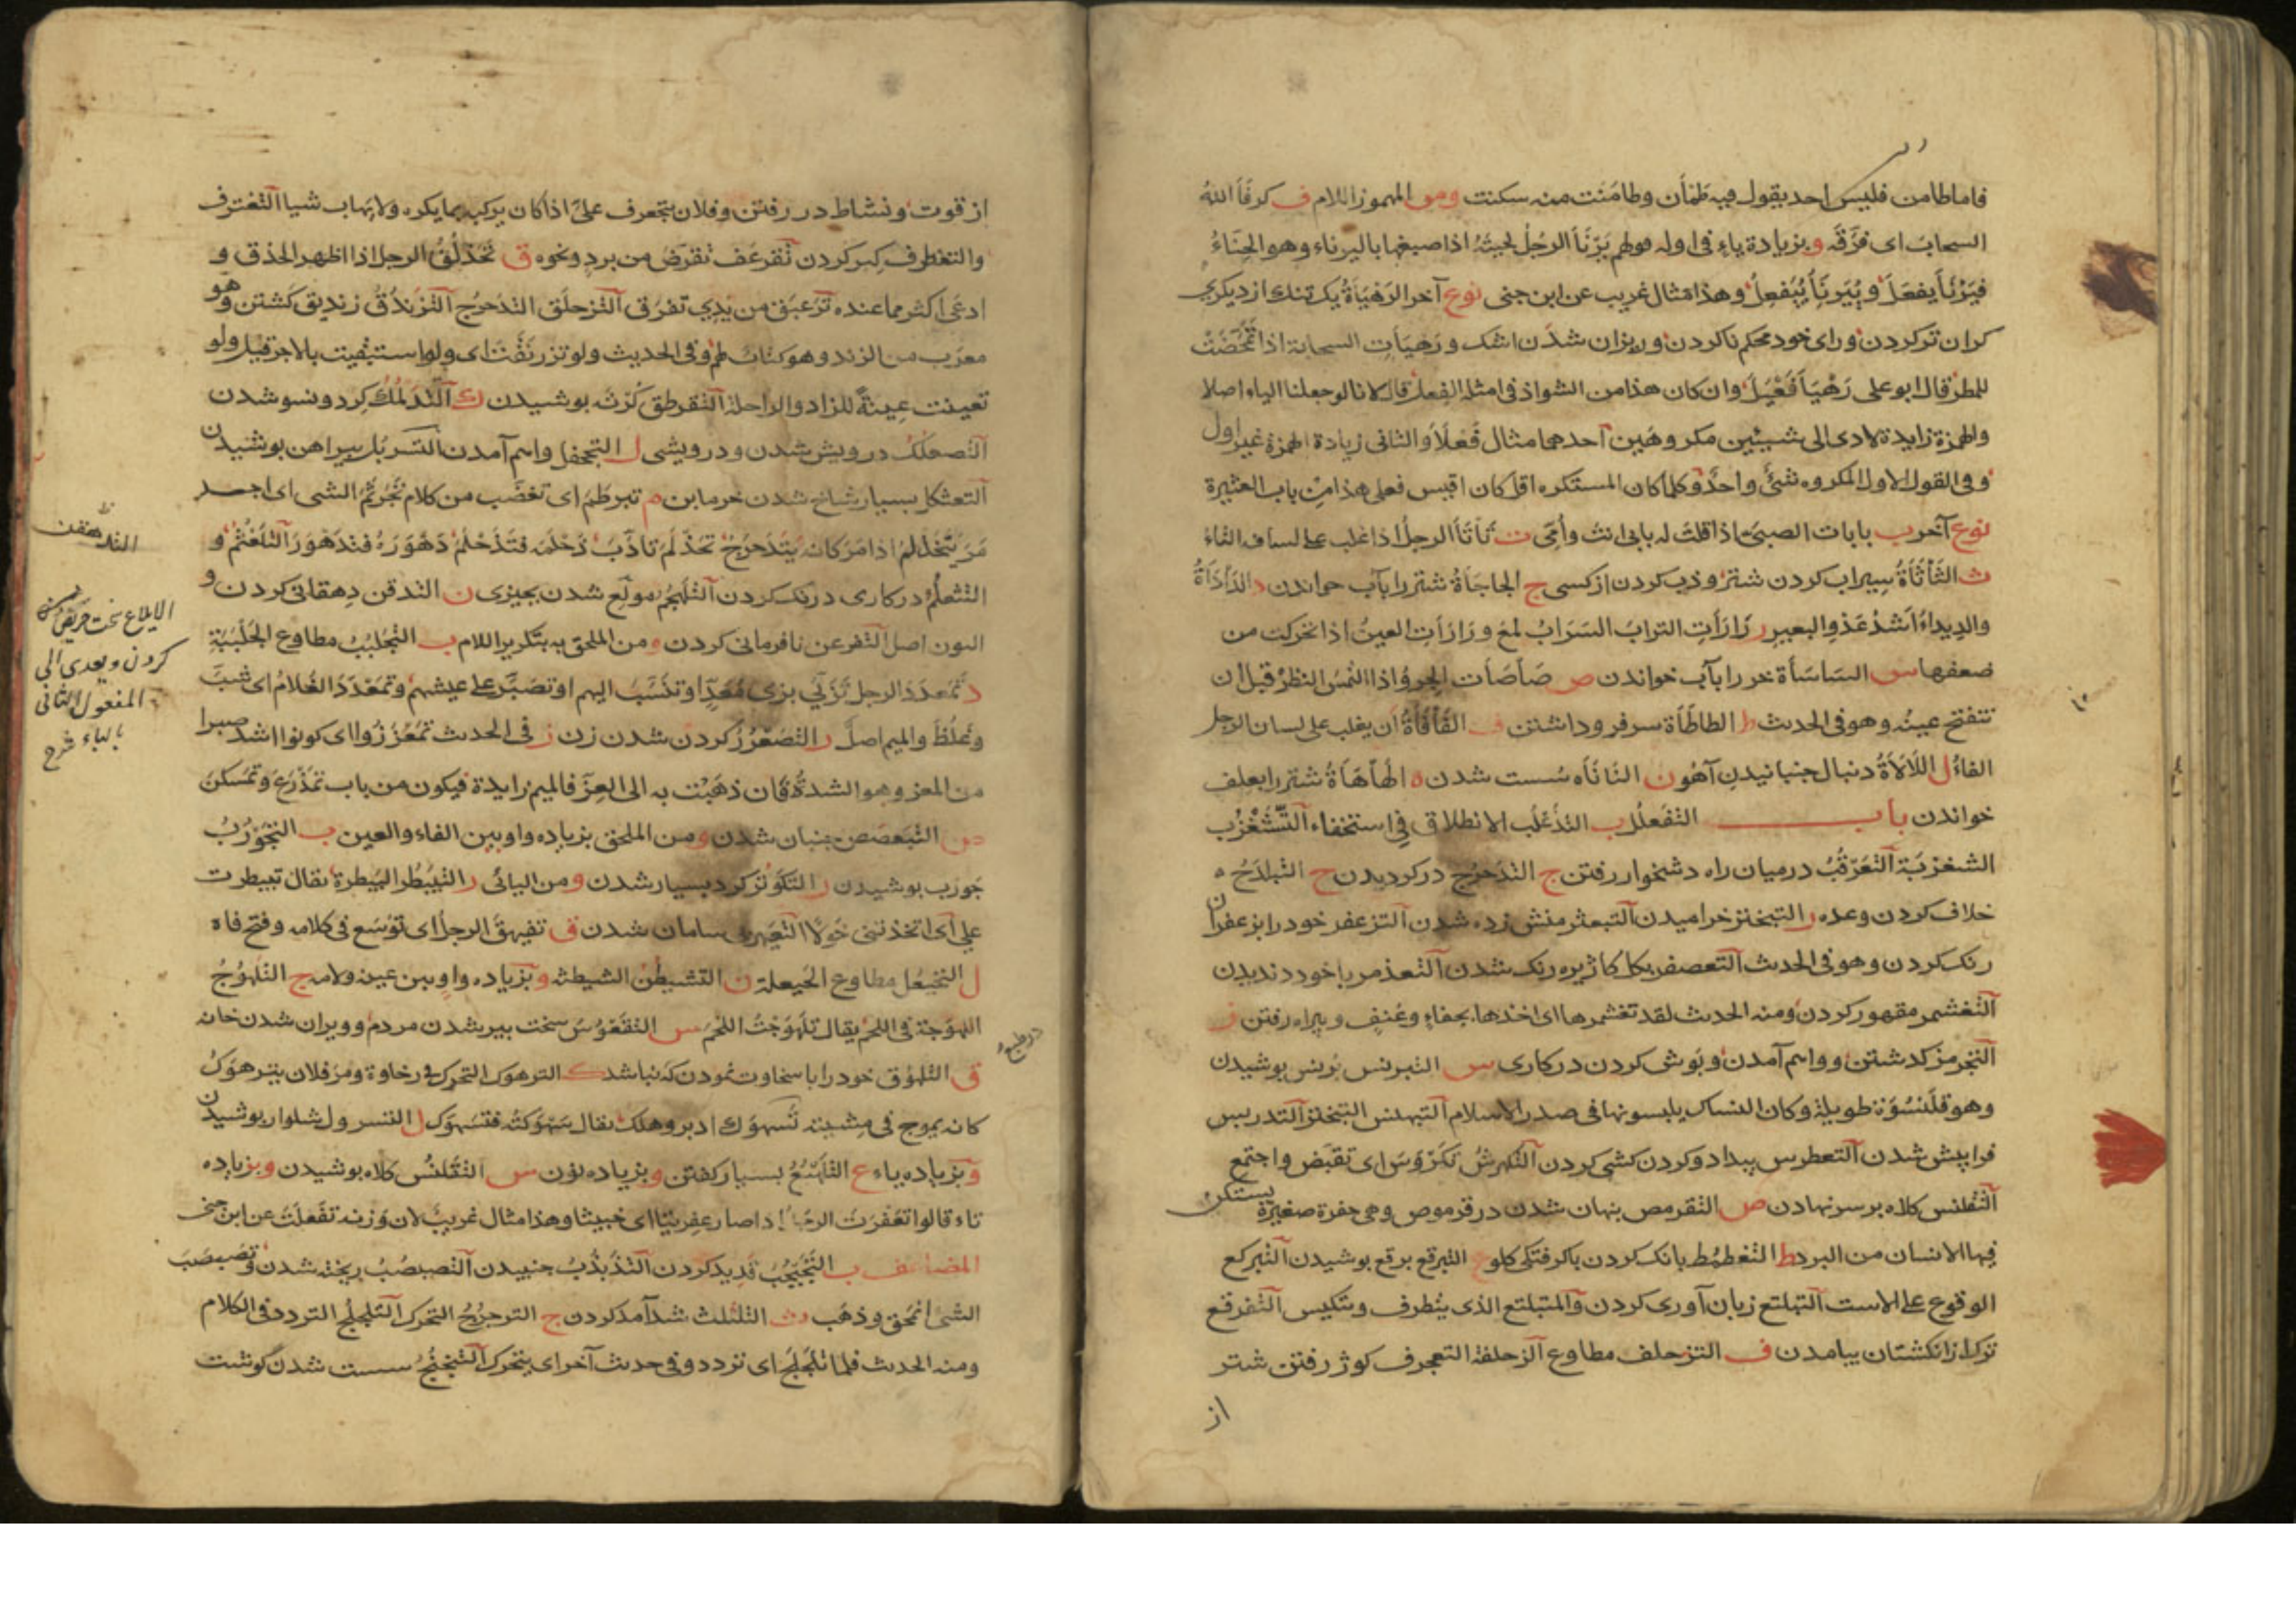 فاما طامن فليس احد يقول فيه طَمْأن وطامَنَت منه سكنت ومن المهموز اللام ف كرفَأَ اللهُ
السحابَ اى فرَّقَه و بزيادة ياء فى اوله قولهم يَرْنَأَ الرجُلُ لحيتَهُ اذا صبغها باليرناء وهو الحِنَاءُ
فيَرْنَأَ يفعَلَ و يُيَرنِأُ يُيَفعِلُ وهذا مثال غريب عن ابن جنى نوع آخر الرَهْيَأةُ يك تنك از ديكرى
كران تر كردن وراى خود محكم نا كردن وريزان شدن اشك ورَهيَأتِ السحابة اذا تمَخّضَتْ
للمطر قال ابو على رَهْيَأَ فَعْيَلَ وان كان هذا من الشواذ فى امثلة الفعل قال لانا لو جعلنا الياء اصلا
والهمزة زايدة لادى الى شيئين مكروهَين احدهما مثال فَعْلَأَ والثانى زيادة الهمزة غير اول
وفى القول الاول المكروه شئٌ واحدٌ وكلما كان المستكره اقل كان اقيس فعلى هذا من باب العثيرة
نوع آخر ب بابأت الصبىّ اذا قلتَ له بابى انتَ وأمّى ت تَأتَأَ الرجلُ اذا غلب على لسانه التاءُ
ث الثَأثَأَةُ سيراب كردن شتر وذب كردن از كسى ج الجاجَأةُ شتر را بآب خواندن د الدَأدَأةُ
والديداءُ اشدُّ عَدْوِ البعير ر رَارَأتِ الترابَ السَرَابُ لمعَ ورَارَأتِ العينُ اذا تحركت من
ضعفها س السَاسَأة خر را بآب خواندن ص صَأصَأت الجِروُ اذا التمسَ النظرَ قبل ان
تتفتح عينه وهو فى الحديث ط الطاطَأَة سر فرو داشتن ف الفَأفَأَةُ أن يغلب على لسان الرجل
الفاءُ ل اللَألَأةُ دنبال جنبانيدن آهو ن النَانَأه سُست شدن ه الهَأهَأةُ شتر را بعلف
خواندن باب التفَعلُل ب التذَعلُب الانطلاق فى استخفاء التَّشَغْزُب
الشغزبَة التَعَرقُبُ درميان راه دشخوار رفتن ج التدَحرُج در كرديدن ح التبلدُحُ
خلاف كردن وعده ر التبختر خراميدن التبعثر منش زده شدن التزعفر خود را بزعفران
رنك كردن وهو فى الحديث التعصفر بكل كاژيره رنك شدن التعذمر با خود دنديدن
التغشمر مقهور كردن ومنه الحديث لقد تغشمرها اى اخذها بجفاءٍ وعُنفٍ وبيراه رفتن ز
التجرمز كذشتن وواسم آمدن وبَوش كردن در كارى س التبرنس بُرنس بوشيدن
وهو قلَنسُوَة طويلة وكان النساك يلبسونها فى صدر الاسلام التبهنس التبختر التدربس
فرا پيش شدن التعطرس بيدادو كردن كشى كردن التكرسُ تكَرْوَسَ اى تقبَض واجتمع
التقلنس كلاه بر سر نهادن ص التقرمص بنهان شدن در قرموص وهى حفرة صغيرة يستكن
فيها الانسان من البرد ط التغطمُط بانك كردن باكرفتكى كلو ع التبرقع برقع بوشيدن التبركع
الوقوع على الاست التبلتع زبان آورى كردن والمتبلتع الذى يتظرف ويتكيس التفرقع
ترك از انكشتان بيامدن ف التزحلف مطاوع الزحلفة التعجرف كوژ رفتن شتر
از
از قوت ونشاط در رفتن وفلان يتعجرف علىّ اذا كان يركبه بما يكره ولا يهاب شيا التغترف
والتغطرف كبر كردن تقرعَف تقرضَ من برد ونحوه ق تَحَذلَقَ الرجل اذا اظهر الحذق و
ادعَى اكثر مما عنده تَرَعبَق من يَدِى تفرَق التزحلَق التدَحرُج التزَندُقُ زنديق كَشتن وهو
معرَب من الزند وهو كتابٌ لهم وفى الحديث ولو تزرنقتَ اى ولو استبقيت بالاجر قيل ولو
تعينت عِينةً للزاد والراحلة التقرطق كُرته بوشيدن ك التدَملُك كرد ونسو شدن
التصعلك درويش شدن ودرويشى ل التجحفل واسم آمدن التسربُل بيراهن بوشيدن
التعثكل بسيار شاخ شدن خرما بن م تبرطَم اى تغضَّب من كلام تجرثَمَ الشى اى اجتمع
مَرَ يتخذلم اذا مَرَ كانه يتدحرج تحذلَم تأدَّبَ دَحلَمَه فتَدَحْلَم دَهْوَرَهُ فتدَهْوَرَ التلَعثُم و
التثعلُم در كارى درنك كردن التلَهجُم مولَع شدن بچيزى ن التدقن دِهقانى كردن و
النون اصل التفرعن نافرمانى كردن ومن الملحق به بتكرير اللام ب التجلبُبُ مطاوع الجَلبَبَةِ
د تمَعدَدَ الرجل تزَيّى بزى مُعَدٍّ او تنَسَّبَ اليهم او تصَبَّر على عيشهم وتمعْدَدَ الغُلامُ اى شبَّ
وغلُظَ والميم اصلٌ ر التصَعْرُرُ كردن شدن زن ز فى الحديث تمَعزَزُوا اى كونوا اشد صبرا
من المعز وهو الشدةُ فان ذهبْتَ به الى العِزّ فالميم زايدة فيكون من باب تمَدْرَعَ وتَمَسكَنَ
ص التبَعصَص جنبان شدن ومن الملحق بزياده واو بين الفاء والعين ب التجَوْرُبُ
جورب بوشيدن ر التكَوثُر كرد بسيار شدن ومن اليائى ر التبَيطُر البَيطرة يقال تبيطرت
على اى اتخذتنى خَولًا التعَيهر بى سامان شدن ق تفيهقَ الرجلُ اى توسَع فى كلامه وفتح فاه
ل التخيعُل مطاوع الخَيعلة ن التشيطُن الشيطنة وبزياده واو بين عينه ولامه ج التلَهوُجُ
اللهوَجة فى اللحم يقال تلَهوَجْتُ اللحْمَ س التقَعْوُس سخت پير شدن مردم وويران شدن خانه
ق التلَهوُق خود را با سخاوت نمودن كه نباشد ك الترهوك التحرك فى رخاوة ومَرَ فلان يترهوَكُ
كانه يموج فى مِشيته تَسَهوَك ادبر وهلك يقال سَهْوَكتُه فتسَهوَك ل التسرول شلوار بوشيدن
وبزياده ياء ع التَرَيُّعُ بسيار كفتن وبزياده نون س التقَلنُس كلاه بوشيدن وبزياده
تاء قالوا تعَفرَتَ الرجُل اذا صار عِفريتا اى خبيثا وهذا مثال غريبٌ لان وَزنه تفَعلَتَ عن ابن جنى
المضاعف ب التَجَبجُبُ قديد كردن التذَبذُبُ جنبيدن التصَبصُبُ ريخته شدن وتصَبصَبَ
الشئ امّحَق وذهَب ث التلثلث شدآمد كردن ج الترجرُجُ التحرك التلَجلُج التردد فى الكلام
ومنه الحديث فلما تلَجلَجَ اى تردد وفى حديث آخر اى يتحرك التبَجبُج سست شدن كوشت
التدهقن
الايلاع سخت حريص
كردن ويعدى الى
المفعول الثانى
بالباء شرح